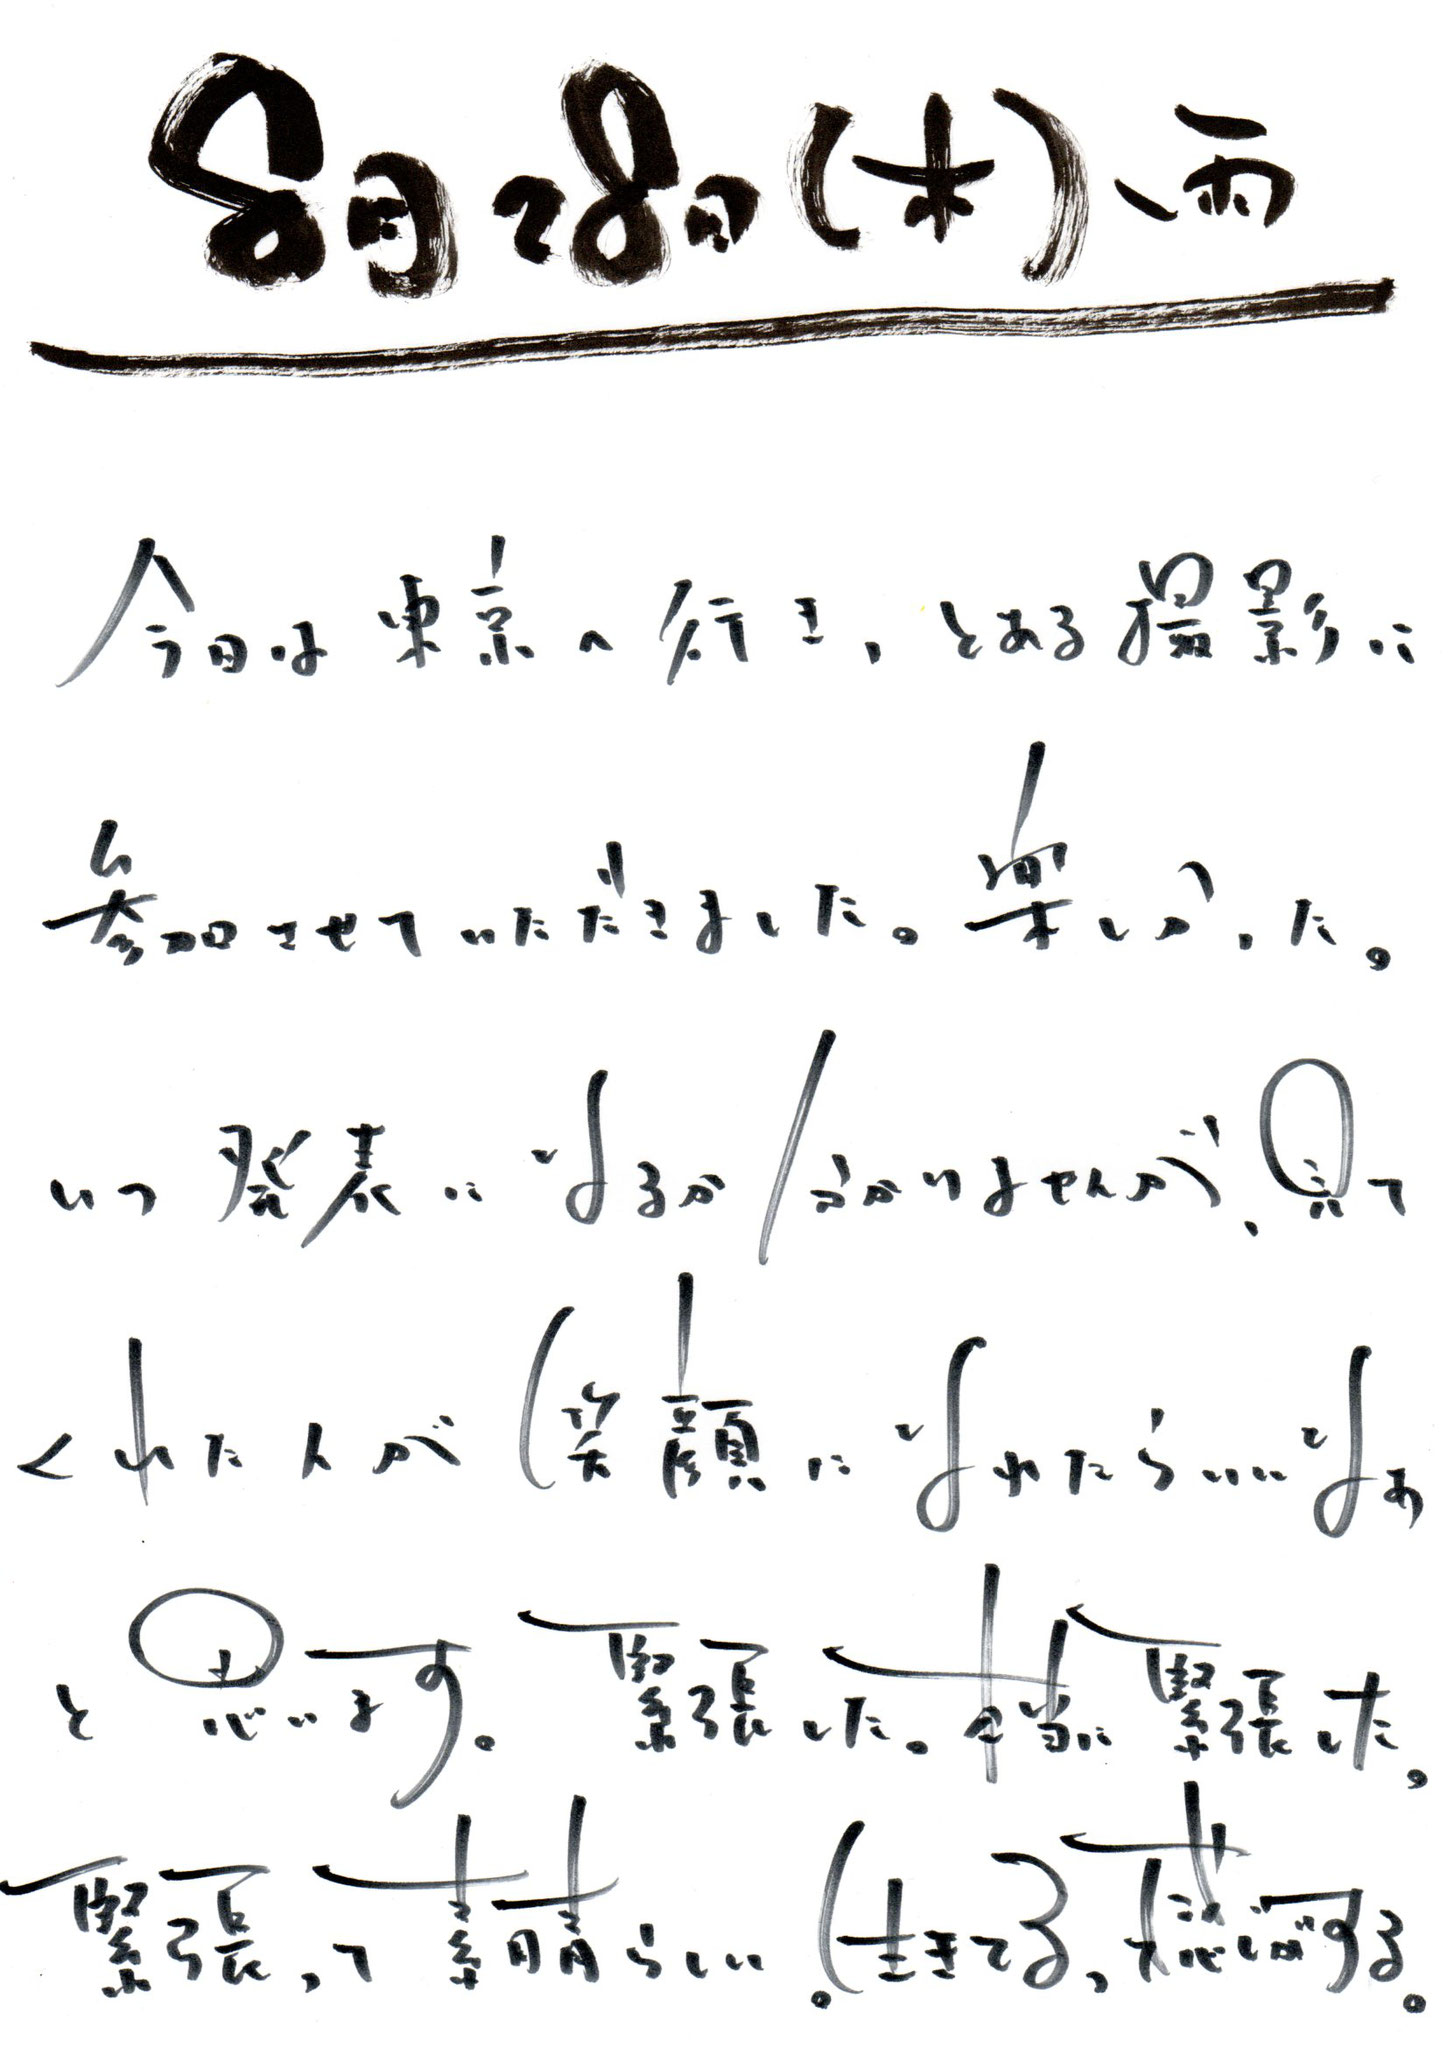 8月28日(木)、雨
今日は東京へ行き、とある撮影に
参加させていただきました。楽しかった。
いつ発表になるかわかりませんが、見て
くれた人が笑顔になれたらいいなぁ
と思います。緊張した。本当に緊張した。
緊張って素晴らしい。生きてる、って感じがする。